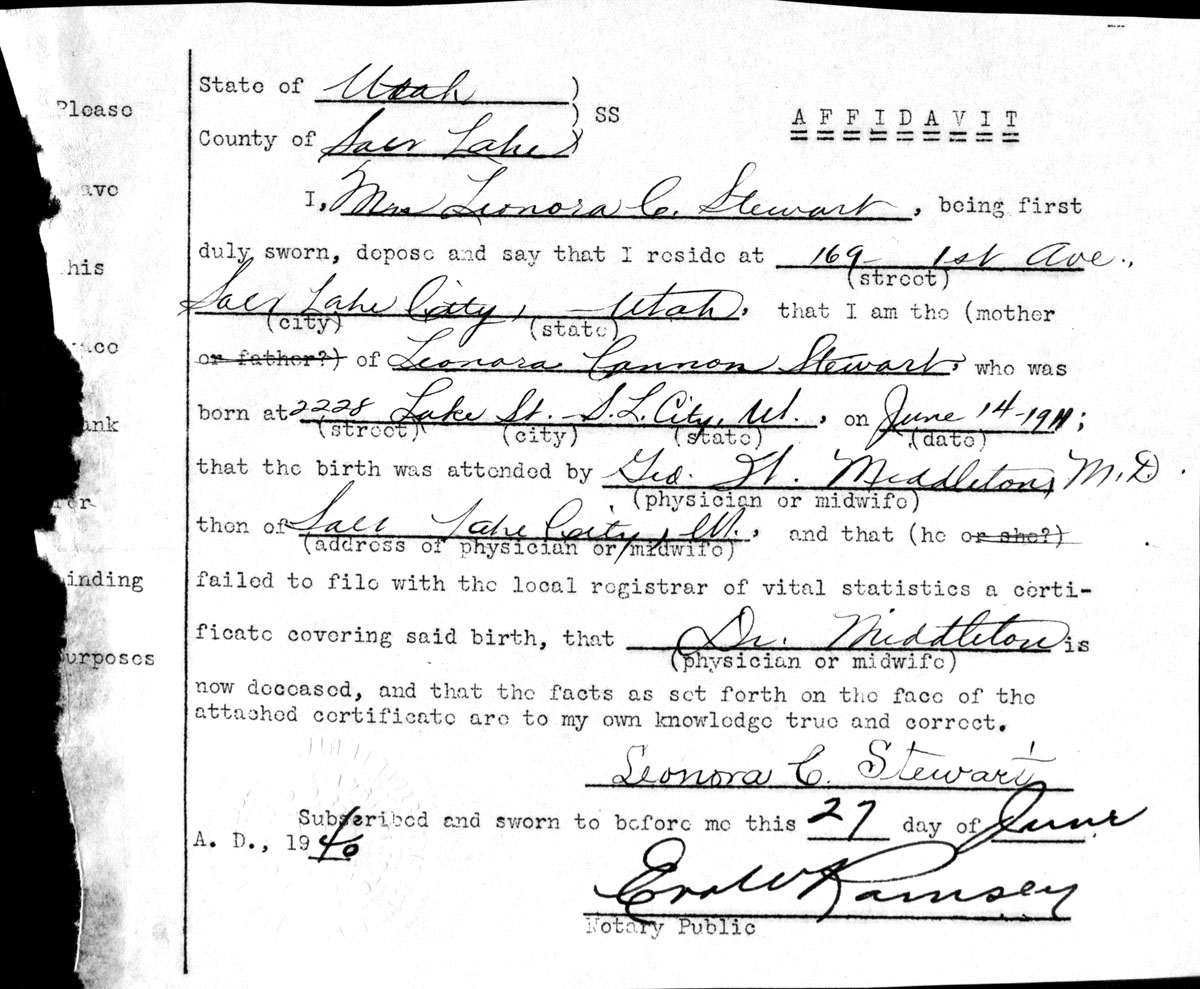 State of Utah )
) SS
County of Salt Lake )
A F F I D A V I T
I, Mrs Leonora C. Stewart, being first
duly sworn, depose and say that I reside at 169 - 1st Ave.,
(street)
Salt Lake City, - Utah, that I am the (mother
(city) (state)
or father?) of Leonora Cannon Stewart, who was
born at 2228 Lake St. - S.L. City, Ut., on June 14-1911;
(street) (city) (state) (date)
that the birth was attended by Geo. W. Middleton, M.D.
(physician or midwife)
then of Salt Lake City, Ut., and that (he or she?)
(address of physician or midwife)
failed to file with the local registrar of vital statistics a certi-
ficate covering said birth, that Dr. Middleton is
(physician or midwife)
now deceased, and that the facts as set forth on the face of the
attached certificate are to my own knowledge true and correct.
Leonora C. Stewart
Subscribed and sworn to before me this 27 day of June
A. D., 1940
Ramsey
Notary Public
Please
ave
his
ace
ank
for
inding
purposes